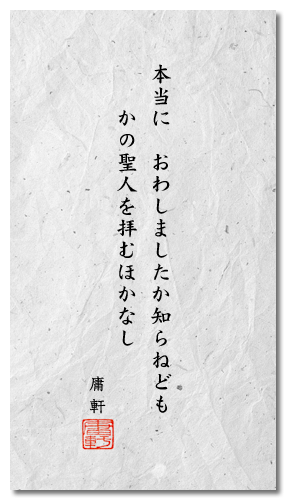 本当に　おわしましたか知らねども
かの聖人を拝むほかなし
庸軒
庸軒